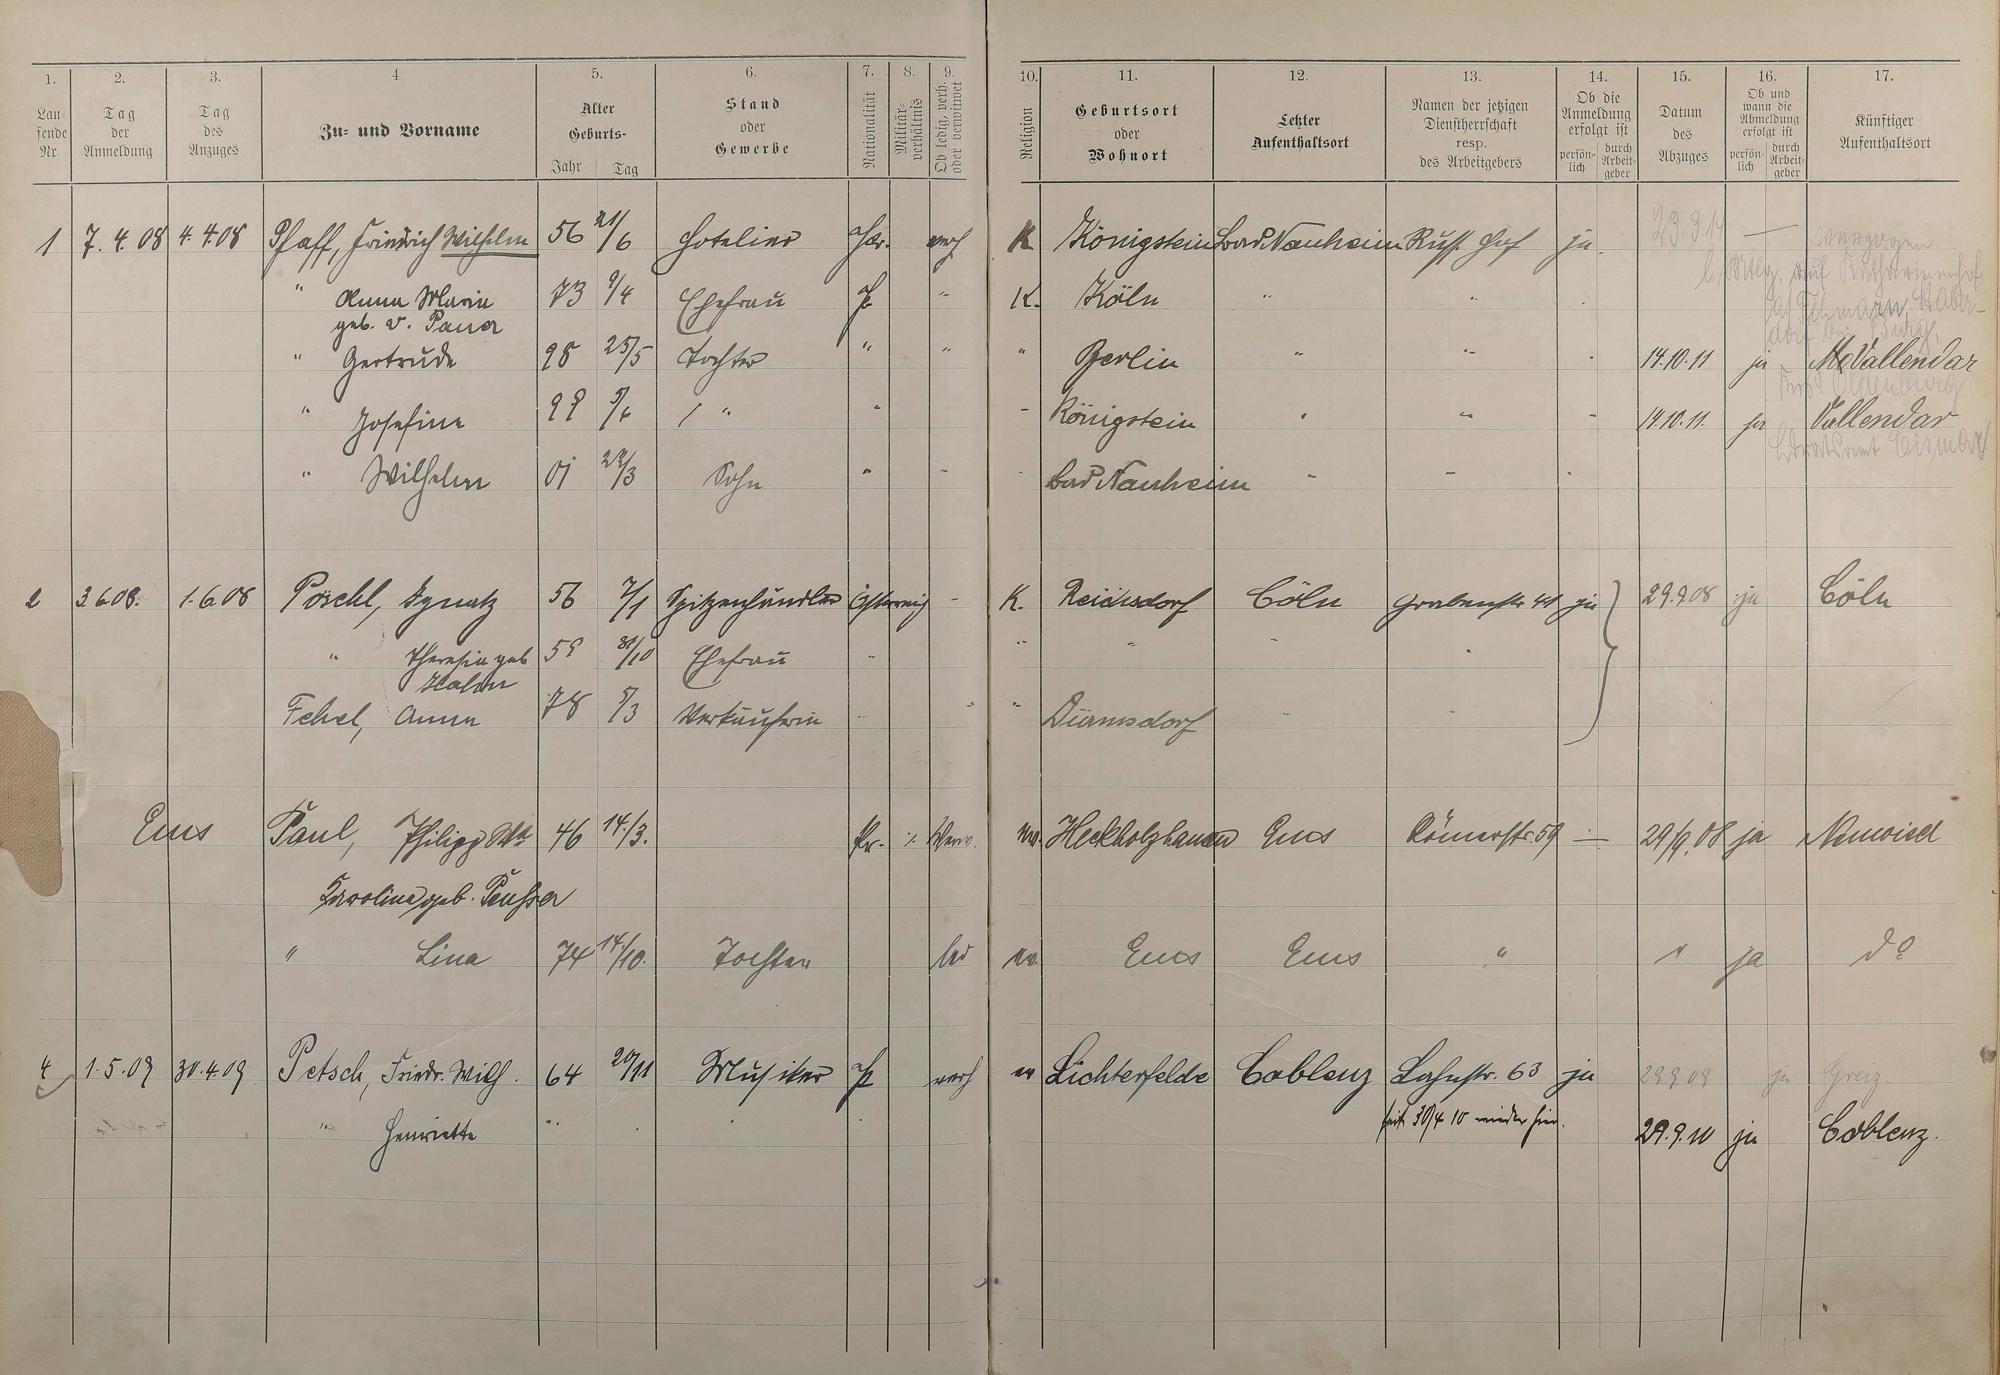 1. 2. 3. 4. 5. 6. 7. 8. 9. 10. 11. 12. 13. 14. 15. 16. 17.
Lau-
fende
Nr.
Tag
der
Anmeldung
Tag
des
Anzuges
Zu- und Vorname
Alter
Geburts-
Jahr Tag
Stand
oder
Gewerbe
Nationalität
Militär-
verhältnis
Ob ledig, verh.
oder verwitwet
Religion
Geburtsort
oder
Wohnort
Letzter
Aufenthaltsort
Namen der jetzigen
Dienstherrschaft
resp.
des Arbeitgebers
Ob die
Anmeldung
erfolgt ist
persön-
lich
durch
Arbeit-
geber
Datum
des
Abzuges
Ob und
wann die
Abmeldung
erfolgt ist
persön-
lich
durch
Arbeit-
geber
Künftiger
Aufenthaltsort
1 7.4.08 4.4.08 Pfaff, Friedrich Wilhelm 56 21/6 Hotelier verh K Königstein Bad Nauheim Russ. Hof ja 23.3.14 — verzogen
" Anna Maria 73 9/4 Ehefrau P " K. Köln " " "
geb. v. Pauer
" Gertrude 98 25/5 Tochter " " " Berlin " " " 14.10.11 ja Vallendar
" Josefine 99 5/6 " " - Königstein " " - 14.10.11. ja Vallendar
" Wilhelm 01 22/3 Sohn " - Bad Nauheim " -
2 3.6.08. 1.6.08 Pöschl, Ignatz 56 7/1 Spitzenhändler Österreich - K. Cöln Grabenstr 41 ja 29.9.08 ja Cöln
" Theresia geb 59 31/10 Ehefrau " " " " "
Fehel, Anna 78 5/3 Verkäuferin " " " "
Ems Paul, Philipp Ww 46 14./3. Pr. ·/. Verw. ev. Heckholzhausen Ems Römerstr. 59 — 29/9.08 ja Neuwied
Karoline geb.
" Lina 74 14./10. Tochter led ev. Ems Ems " " ja do
4 1.5.09 30.4.09 Petsch, Friedr. Wilh. 64 20/11 Musiker P verh ev Lichterfelde Coblenz Lahnstr. 63 ja 29 9 09 ja Greiz.
" Henriette " seit 30/4 10 wieder hier. 29.9.10 ja Coblenz.